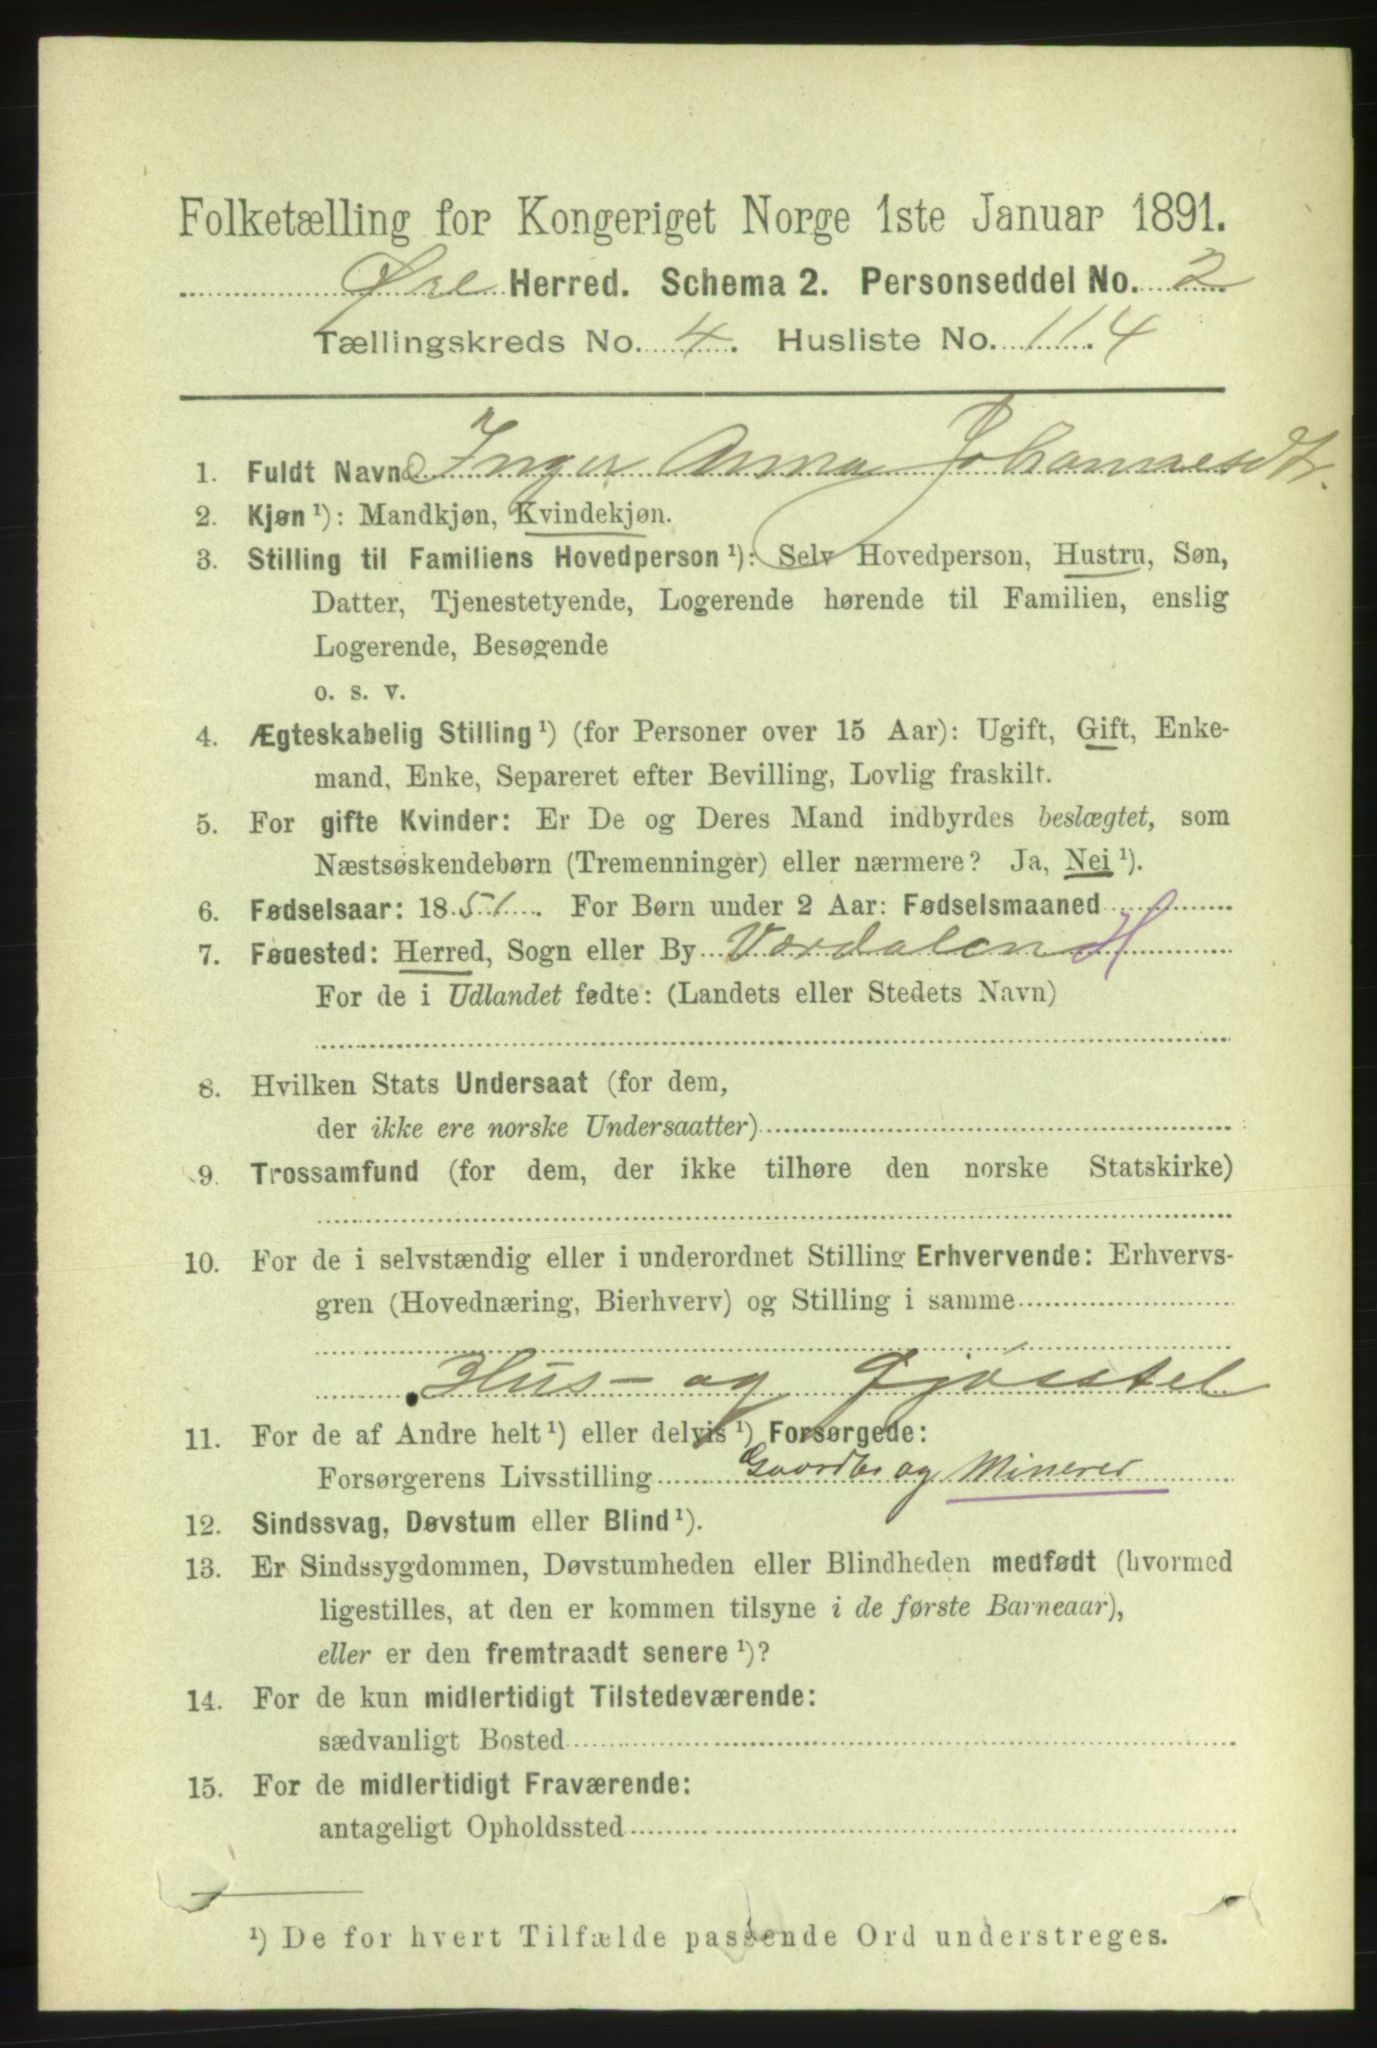 Folketælling for Kongeriget Norge 1ste Januar 1891.
Øre Herred. Schema 2. Personseddel No. 2
Tællingskreds No. 4. Husliste No. 114
1. Fuldt Navn Inger Anna Johannesdtr.
2. Kjøn ¹): Mandkjøn, Kvindekjøn.
3. Stilling til Familiens Hovedperson ¹): Selv Hovedperson, Hustru, Søn,
Datter, Tjenestetyende, Logerende hørende til Familien, enslig
Logerende, Besøgende
o. s. v.
4. Ægteskabelig Stilling ¹) (for Personer over 15 Aar): Ugift, Gift, Enke-
mand, Enke, Separeret efter Bevilling, Lovlig fraskilt.
5. For gifte Kvinder: Er De og Deres Mand indbyrdes beslægtet, som
Næstsøskendebørn (Tremenninger) eller nærmere? Ja, Nei ¹).
6. Fødselsaar: 1851. For Børn under 2 Aar: Fødselsmaaned
7. Føgested: Herred, Sogn eller By Værdalen H
For de i Udlandet fødte: (Landets eller Stedets Navn)
8. Hvilken Stats Undersaat (for dem,
der ikke ere norske Undersaatter)
9. Trossamfund (for dem, der ikke tilhøre den norske Statskirke)
10. For de i selvstændig eller i underordnet Stilling Erhvervende: Erhvervs-
gren (Hovednæring, Bierhverv) og Stilling i samme
Hus- og Fjøsstel
11. For de af Andre helt ¹) eller delvis ¹) Forsørgede:
Forsørgerens Livsstilling Gaardbr og Minerer
12. Sindssvag, Døvstum eller Blind ¹).
13. Er Sindssygdommen, Døvstumheden eller Blindheden medfødt (hvormed
ligestilles, at den er kommen tilsyne i de første Barneaar),
eller er den fremtraadt senere ¹)?
14. For de kun midlertidigt Tilstedeværende:
sædvanligt Bosted
15. For de midlertidigt Fraværende:
antageligt Opholdssted
¹) De for hvert Tilfælde passende Ord understreges.